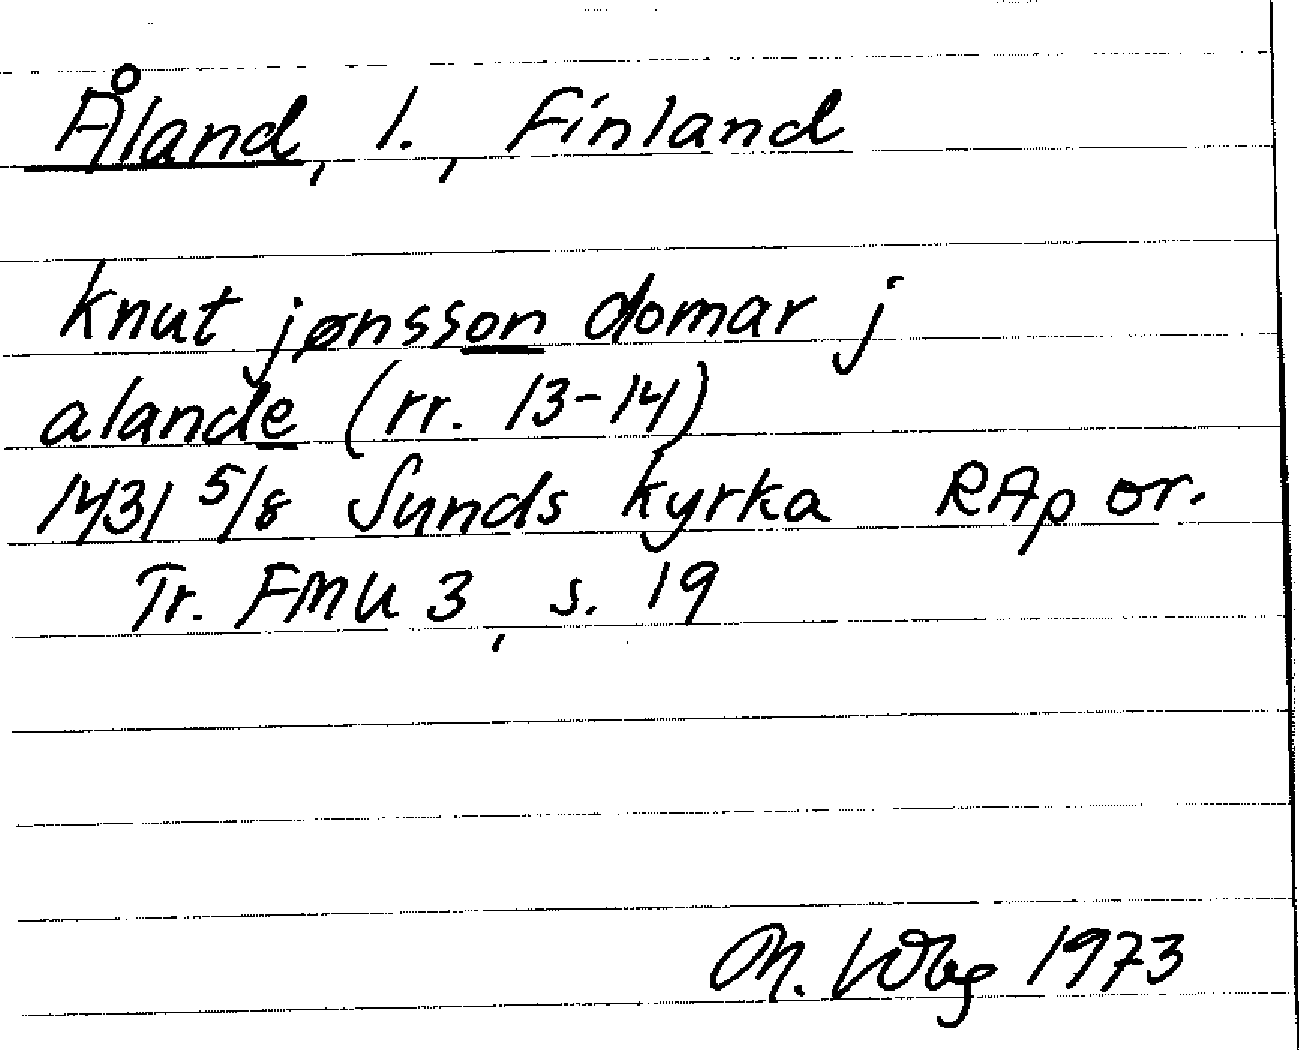 Åland, l., Finland
knut jønsson domar j
alande (rr. 13-14)
1431 5/8 Sunds kyrka RAp or.
Tr. FMU 3, s. 19
M. 1973